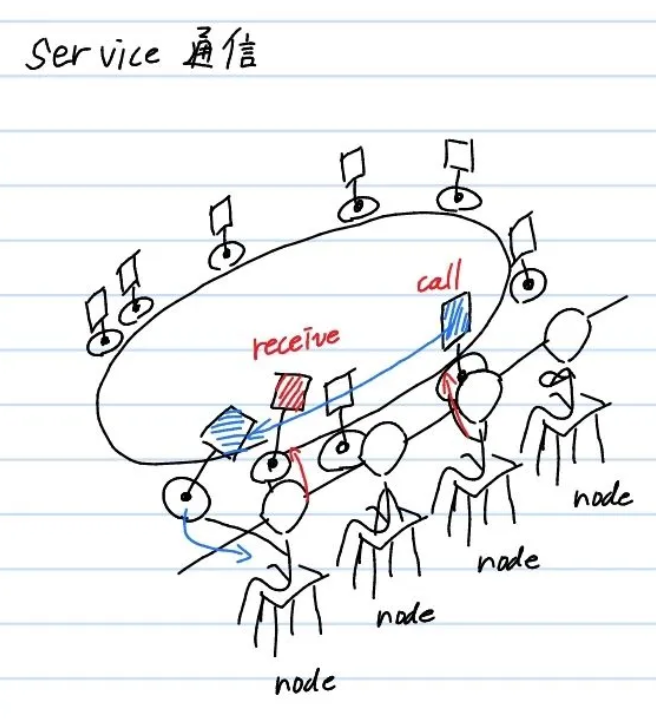 Service 通信
call
receive
node
node
node
node